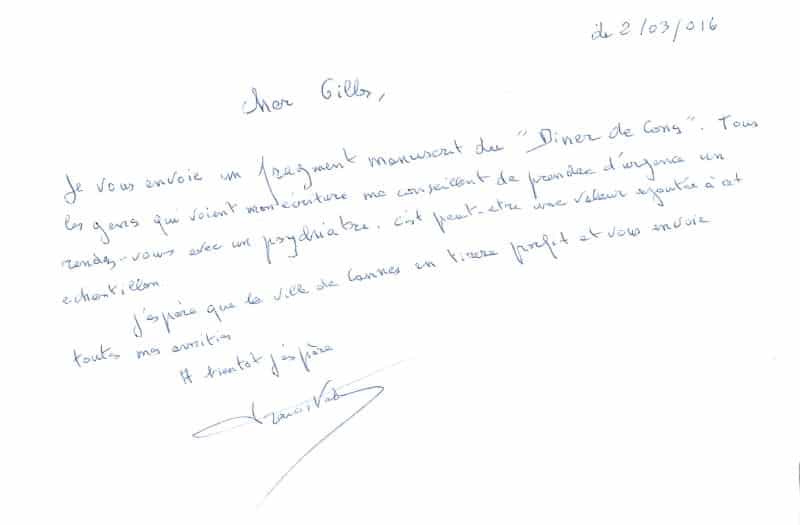 le 2/03/016
Cher Gilles,
Je vous envoie un fragment manuscrit du "Diner de Cons". Tous
les gens qui voient mon écriture me conseillent de prendre d'urgence un
rendez-vous avec un psychiatre. C'est peut-etre une valeur ajoutée à cet
echantillon.
J'espère que la ville de Cannes en tirera profit et vous envoie
toutes mes amitiés
A bientot j'espère
Francis Veber